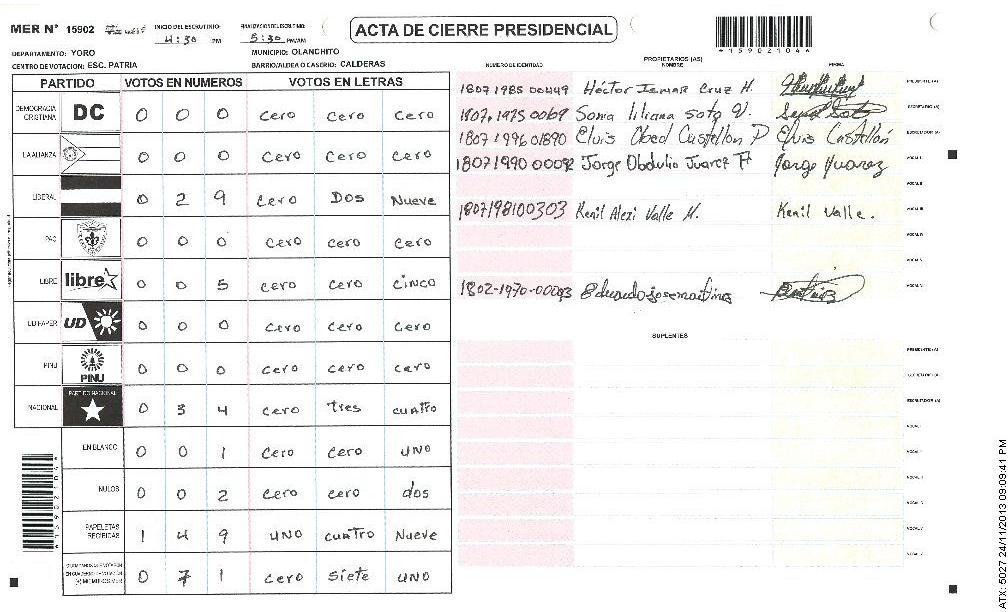 MER N° 15902
INICIO DEL ESCRUTINIO: 4:30 PM
FINALIZACION DEL ESCRUTINIO: 5:30 PM/AM
ACTA DE CIERRE PRESIDENCIAL
+15902104+
DEPARTAMENTO: YORO
MUNICIPIO: OLANCHITO
CENTRO DE VOTACION: ESC. PATRIA
BARRIO/ALDEA O CASERIO: CALDERAS
PARTIDO VOTOS EN NUMEROS VOTOS EN LETRAS
DEMOCRACIA CRISTIANA DC 0 0 0 cero cero cero
LA ALIANZA 0 0 0 cero cero cero
LIBERAL 0 2 9 cero Dos Nueve
PAC 0 0 0 cero cero cero
LIBRE libre 0 0 5 cero cero cinco
UD FAPER UD 0 0 0 cero cero cero
PINU PINU 0 0 0 cero cero cero
NACIONAL PARTIDO NACIONAL 0 3 4 cero tres cuatro
EN BLANCO 0 0 1 cero cero uno
NULOS 0 0 2 cero cero dos
PAPELETAS RECIBIDAS 1 4 9 uno cuatro Nueve
(+) MIEMBROS MER 0 7 1 cero siete uno
NUMERO DE IDENTIDAD
PROPIETARIOS (AS)
NOMBRE
FIRMA
1807 1985 00449 Héctor Ismar Cruz M. PRESIDENTE (A)
1807 1975 0069 Sonia liliana soto V. SECRETARIO (A)
1807 1996 01890 Elvis Obed Castellon P Elvis Castellón ESCRUTADOR (A)
Jorge Obdulio Juarez Jorge Juarez VOCAL I
VOCAL II
1807198100303 Kenil Alexi Valle M. Kenil Valle. VOCAL III
VOCAL IV
VOCAL V
1802-1970-00093 Eduardo jose martinez
SUPLENTES
PRESIDENTE (A)
SECRETARIO (A)
ESCRUTADOR (A)
ATX: 5027 24/11/2013 09:09:41 PM